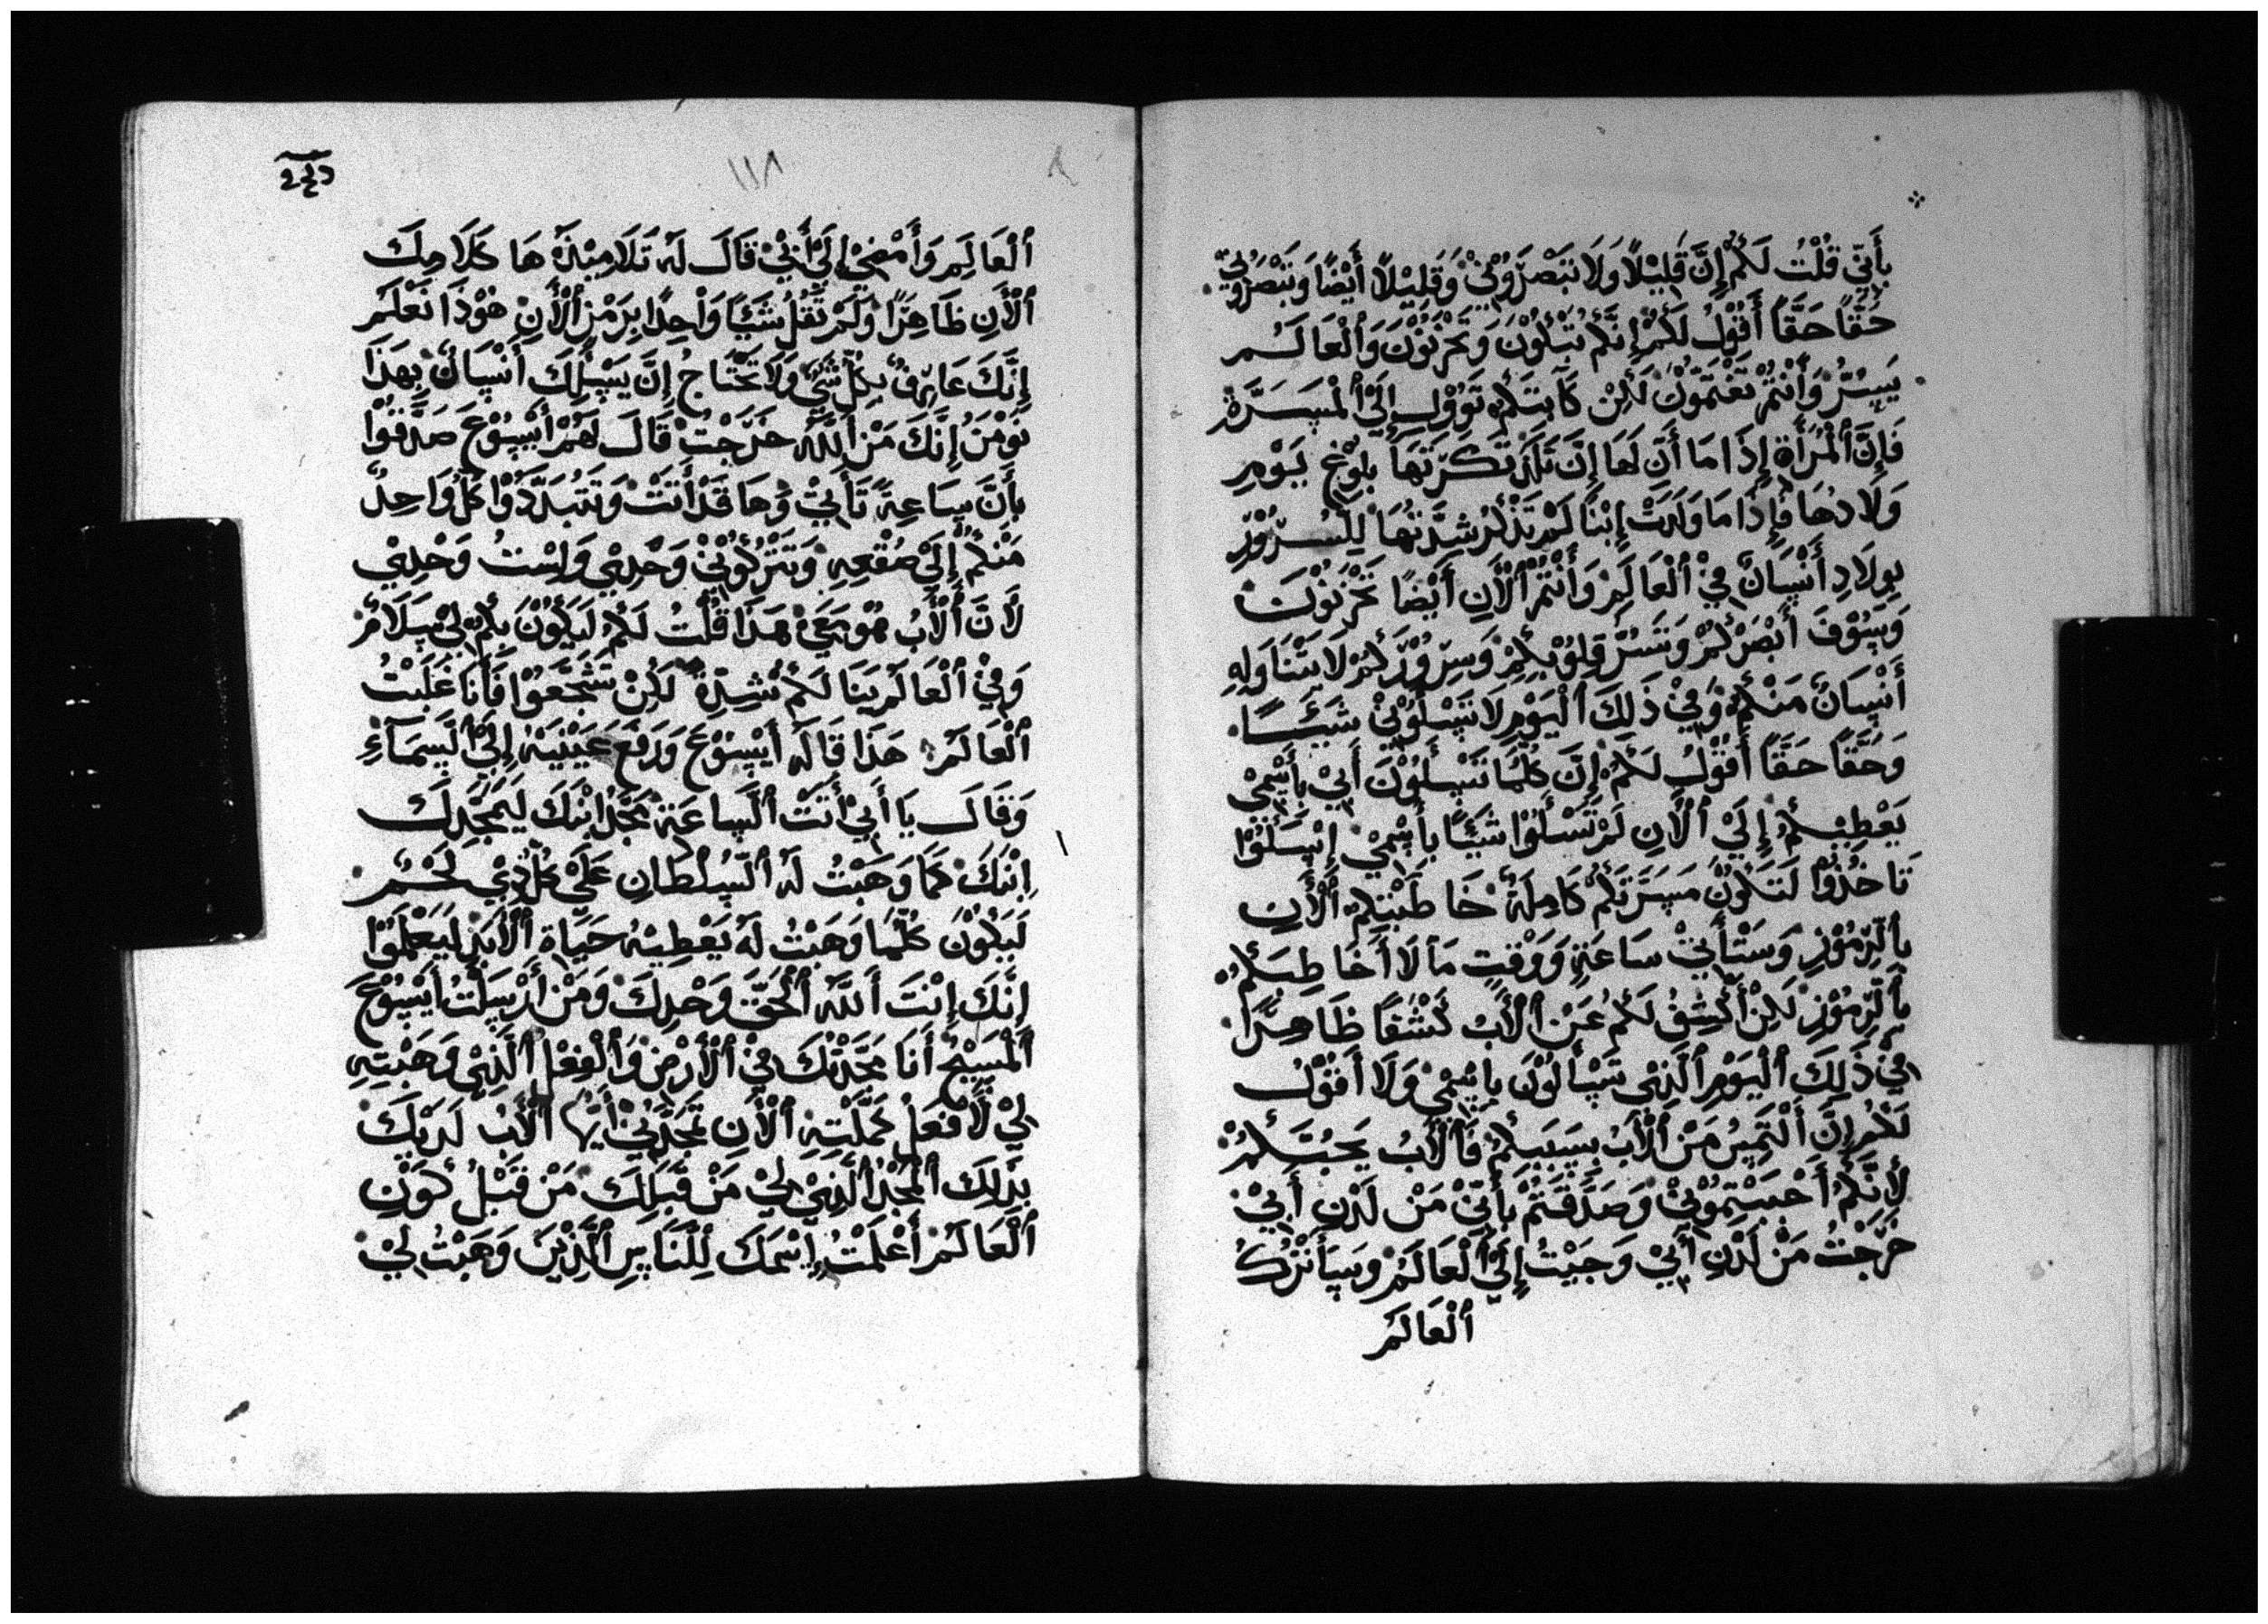 بِأَنِّي قُلْتُ لَكُمْ إِنَّ قَلِيْلًا وَلَا تَبْصَرُوْنِيْ وَقَلِيْلًا أَيْضًا وَتَبْصَرُوْنِيْ
حُقًّا حَقًّا أَقُوْلُ لَكُمْ إِنَّكُمْ تُبْكُوْنَ وَتَحْزَنُوْنَ وَٱلْعَالَمُ
يَسِرُّ وَأَنْتُمْ تَغْتَمُّوْنَ لَٰكِنْ كَآبَتَكُمْ تَوُوْلُ إِلَىْ ٱلْمَسَرَّةْ
فَإِنَّ ٱلْمَرْأَةَ إِذَا مَا أَنَ لَهَا إِنَّ تَلَدْ تَكَرَّبَهَا بِلَوْغِ يَوْمِ
وَلَادُهَا فَإِذَا مَا وَلَدَتْ إِبْنًا لَمْ تَذْكُرْ شِدَّتُهَا لِلسُرُوْرِ
بِوِلَادِ أَنْسَانٌ فِيْ ٱلْعَالَمِ وَأَنْتُمْ ٱلْأَنِ أَيْضًا تَحْزَنُوْنَ
وَسَوْفَ أَبْصَرْكُمْ وَتَسُرُّ قِلُوْبِكِمْ وَسِرُوْرُكُمْ لَا يَتْنَاوَلِهِ
أَنْسَانٌ مَنْكُمْ وَفِيْ ذَلِكَ ٱلْيَوْمِ لَا تَسْلُوْنِيْ شَيَئًا
وَحُقًّا حَقًّا أَقُوْلُ لَكُمْ إِنَّ كُلَّمَا تَسْلُوْنَ أَبِيْ بِأَسْمِيْ
يَعْطِيْكُمْ إِلَىْ ٱلْأَنِ لَمْ تَسْلُوْا شَيَئًا بِأَسْمِيْ إِسَلُوْا
تَاخُذُوْا لَتَكُوْنْ مَسَرَّتَكُمْ كَامِلَةْ خَاطَبْتَكُمْ ٱلْأَنِ
بِٱلرِّمُوْزِ وَسَتْأَتِيْ سَاعَةٍ وَوَقْتٍ مَا لَا أُخَاطِبَكُمْ
بِٱلرِّمُوْزِ لَكِنْ أَكْشِفُ لَكُمْ عَنْ ٱلْأَبُ كَشْفًا ظَاهِرًا
فِيْ ذَلِكَ ٱلْيَوْمِ ٱلَّذِيْ تَسْأَلُوْنَ بِاِسْمِيْ وَلَا أَقُوْلُ
لَكُمْ إِنَّ أَلْتَمِسُ مَنْ ٱلْأَبُ بِسَبَبِكُمْ فَٱلْأَبُ يَحَبُّكُمْ
لِأَنَّكُمْ أَحْبَبْتِمُوْنِيْ وَصَدَّقْتُمْ بِأَنِّيْ مَنْ لَدْنِ أَبِيْ
خَرَجْتُ مَنْ لَدْنِ أَبِيْ وَجَيْتُ إِلَىْ ٱلْعَالَمْ وَسَأَتْرُكُ
ٱلْعَالَمْ
١١٨
ٱلْعَالَمِ وَأَمْضِيْ إِلَىْ أَبِيْ قَالَ لَهُ تَلَامِيْذَهُ هَا كَلَامِكَ
ٱلْأَنِ ظَاهِرًا وَلَمْ تَقُلْ شَيَئًا وَاْحِدًا بِرَمْزٍ ٱلْأَنِ هُوْذَا نَعْلَمْ
إِنَّكَ عَارِفٌ بِكُلِّ شَيْ وَلَا تَحْتَاجُ إِنَّ يَسْلُكَ أَنْسَانٌ بِهَذَا
نَوْمَنُ إِنَّكَ مَنْ ٱللّٰهُ خَرَجْتْ قَالَ لَهُمْ أَيْسُوْعَ صَدَّقُوْا
بِأَنَّ سَاعِةً تَأَتِيْ وَهَا قَدْ أَتَتْ وَتَتُبَدَّدُوْا كُلُّوَاحِدٌ
مَنْكُمْ إِلَىْ صُقْعِهِ وَتَتْرُكُوْنِيْ وَحْدِيْ وَلِسْتُ وَحْدِيْ
لَانَّ ٱلْأَبُ هُوْ مَعِيْ هَذَا قُلْتُ لَكُمْ لَيَكُوْنَ بِكُمْ لِيْ سَلَامْ
وَفِيْ ٱلْعَالَمْ يَنَا لَكُمْ شِدَّةْ لَكُنْ تَشَجَّعُوْا فَأَنَا غَلَبْتُ
ٱلْعَالَمْ هَذَا قَالَهُ أَيْسُوْعَ وَرَفَعَ عَيْنَيْهِ إِلَىْ ٱلَسَمَآءِ
وَقَالَ يَا أَبِيْ أَتَتْ ٱلَسَاعَةْ مَجِّدْ اِبْنَكَ لَيَمَجِّدَكَ
اِبْنَكَ كَمَا وَهَبْتُ لَهُ ٱلسُلْطَانِ عَلَىْ كُلِّ ذِيْ لَحْمٍ
لَيَكُوْنَ كُلَّمَا وَهَبْتُ لَهُ يَعْطِيْهُ حَيَاةِ ٱلْأَبَدِ لَيَعْلَمُوْا
إِنَّكَ إِنْتَ أَللّٰهُ ٱلْحَقَّ وَحْدِكَ وَمَنْ أَرْسَلْتُ أَيْسُوْعَ
ٱلْمَسِيْحُ أَنَا مَجَّدْتْكَ فِيْ ٱلْأَرْضِ وَٱلْفِعْلِ ٱلَّذِيْ وَهَبْتِهِ
لِيْ لَأَفْعَلْ كَمَّلْتِهِ ٱلْأَنِ تَمَجَّدْنِيْ أَيُّهَا ٱلْأَبُ لَدَيْكَ
بِذَلِكَ ٱلْمَجْدْ ٱلَّذِيْ لِيْ مَنْ قَبَلَكَ مَنْ قَبْلُ كَوْنِ
ٱلْعَالَمْ أَعْلَمْتُ إِسْمَكَ لِلَنَاسِ ٱلَّذِيْنَ وَهَبْتُ لِيْ